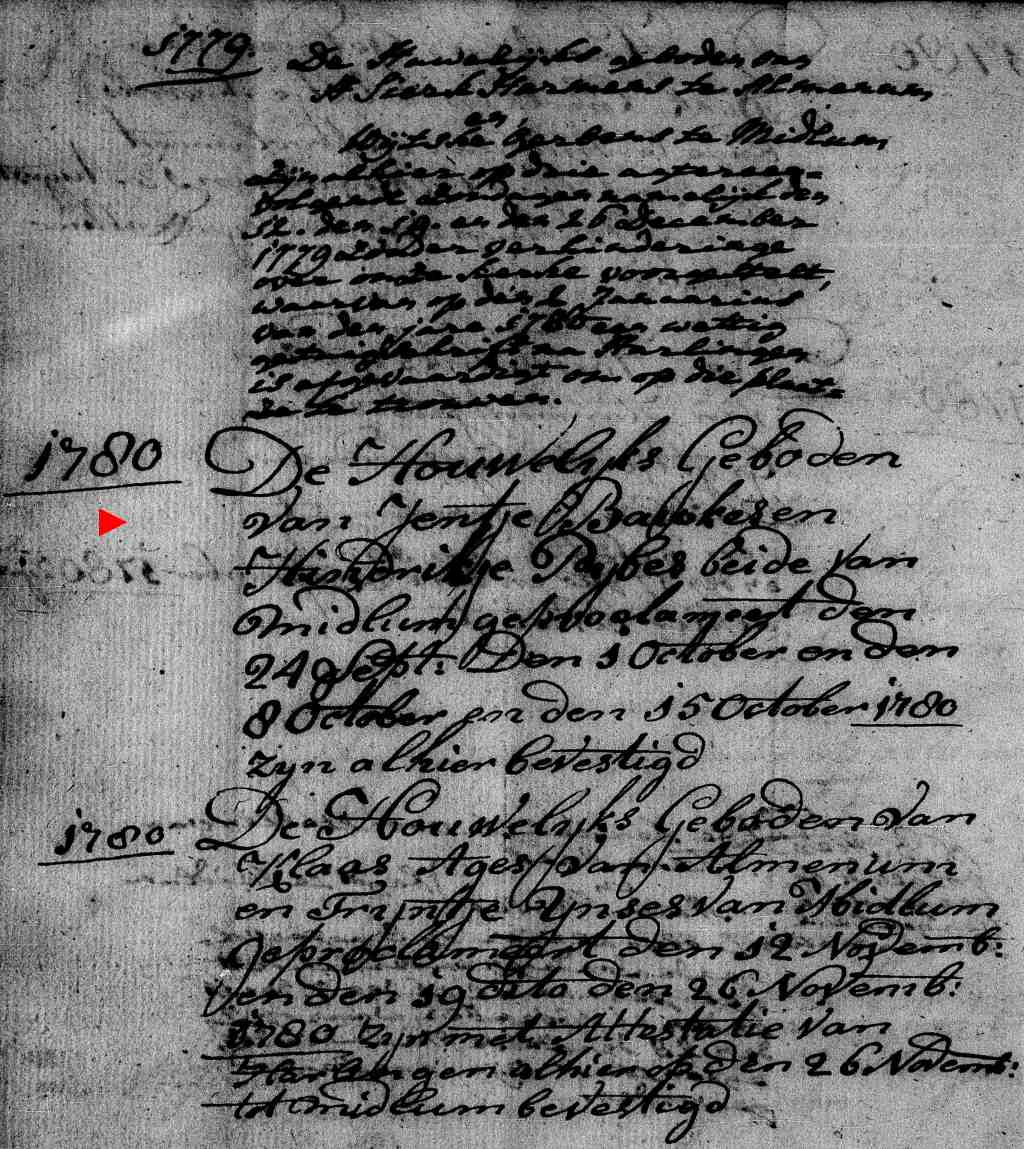 1779. De Huwelijks geboden van
Sierk Harmens te Almenum
en
Wijtske Gerbens te Midlum
zijn alhier op drie agtereen-
volgende Zondagen namelijk den
12. den 19. en den 26 December
1779 zonder verhinderinge
voor onze kerke voorgestelt,
waarvan op den 2 Januarius
van den jare 1780 een wettig
getuigschrift na Harlingen
is afgevaardigt om op die plaat-
ze te trouwen.
1780 De Houwelyks Geboden
van Jentje Baukes en
Hendrikje Pybes beide van
Midlum geproclameert den
24 Sept: Den 1 October en den
8 October en den 15 October 1780
zyn alhier bevestigd
1780 De Houwelyks Geboden van
Klaas Ages van Almenum
en Tryntje Ynses van Midlum
Geproclameert den 12 Novemb:
en den 19 dito den 26 Novemb:
1780 zyn met Attestatie van
Harlingen alhier op den 26 Novemb:
tot midlum bevestigd